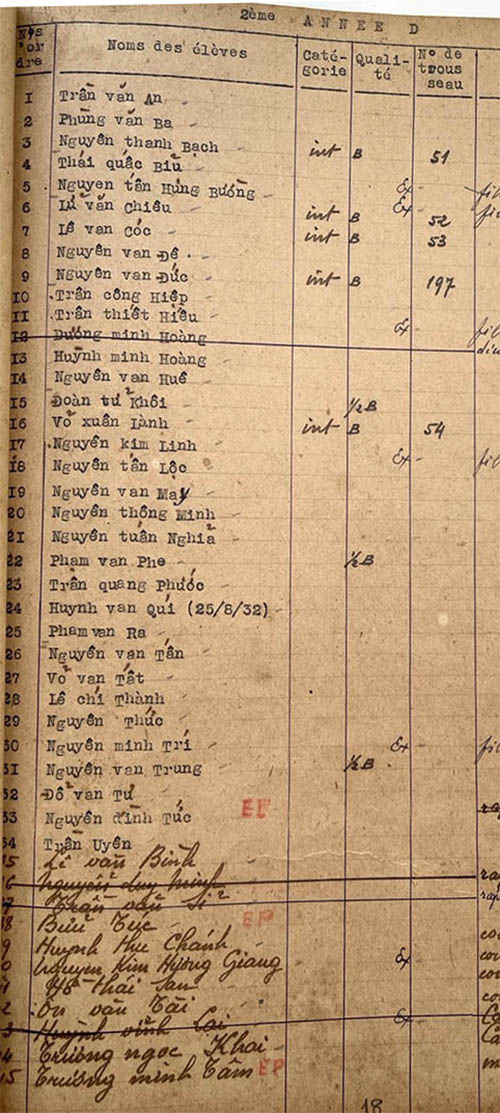 2ème ANNEE D
Nos d'ordre Noms des élèves Catégorie Qualité No de trousseau
1 Trần văn An
2 Phùng văn Ba
3 Nguyễn thanh Bạch int B 51
4 Thái quấc Biũ
5 Nguyen tấn Hưng Bường Ex - fil
6 Lử văn Chiêu int B Ex - 52
7 Lê van Cóc int B 53
8 Nguyễn van Đê
9 Nguyễn van Đức int B 197
10 Trần công Hiệp
11 Trần thiết Hiếu Ex - fil
12 Dương minh Hoàng
13 Huỳnh minh Hoàng
14 Nguyễn van Huê
15 Đoàn tư Khôi ½ B
16 Võ xuân Lành int B 54
17 Nguyễn kim Linh Ex - fil
18 Nguyễn tấn Lộc
19 Nguyễn van Mạy
20 Nguyễn thông Minh
21 Nguyễn tuấn Nghiả
22 Phạm van Phe ½ B
23 Trần quang Phước
24 Huỳnh van Quí (25/8/32)
25 Phạm van Ra
26 Nguyễn van Tấn
27 Vỏ van Tất
28 Lê chí Thành
29 Nguyễn Thức
30 Nguyễn minh Trí Ex - fil
31 Nguyễn van Trung ½ B
32 Đổ van Tư
33 Nguyễn đình Túc EP
34 Trần Uyên
35 Lê văn Bình
36 Nguyễn duy Minh
37 Trần văn Sỉ
38 Bửu Tục EP
39 Huỳnh thu Chánh
40 Nguyen Kim Hương Giang Ex
41 Hồ thái San
42 Ôn văn Tài
43 Huỳnh vĩnh Lai Ex
44 Trương ngọc Khai
45 Trương minh Tâm EP
18